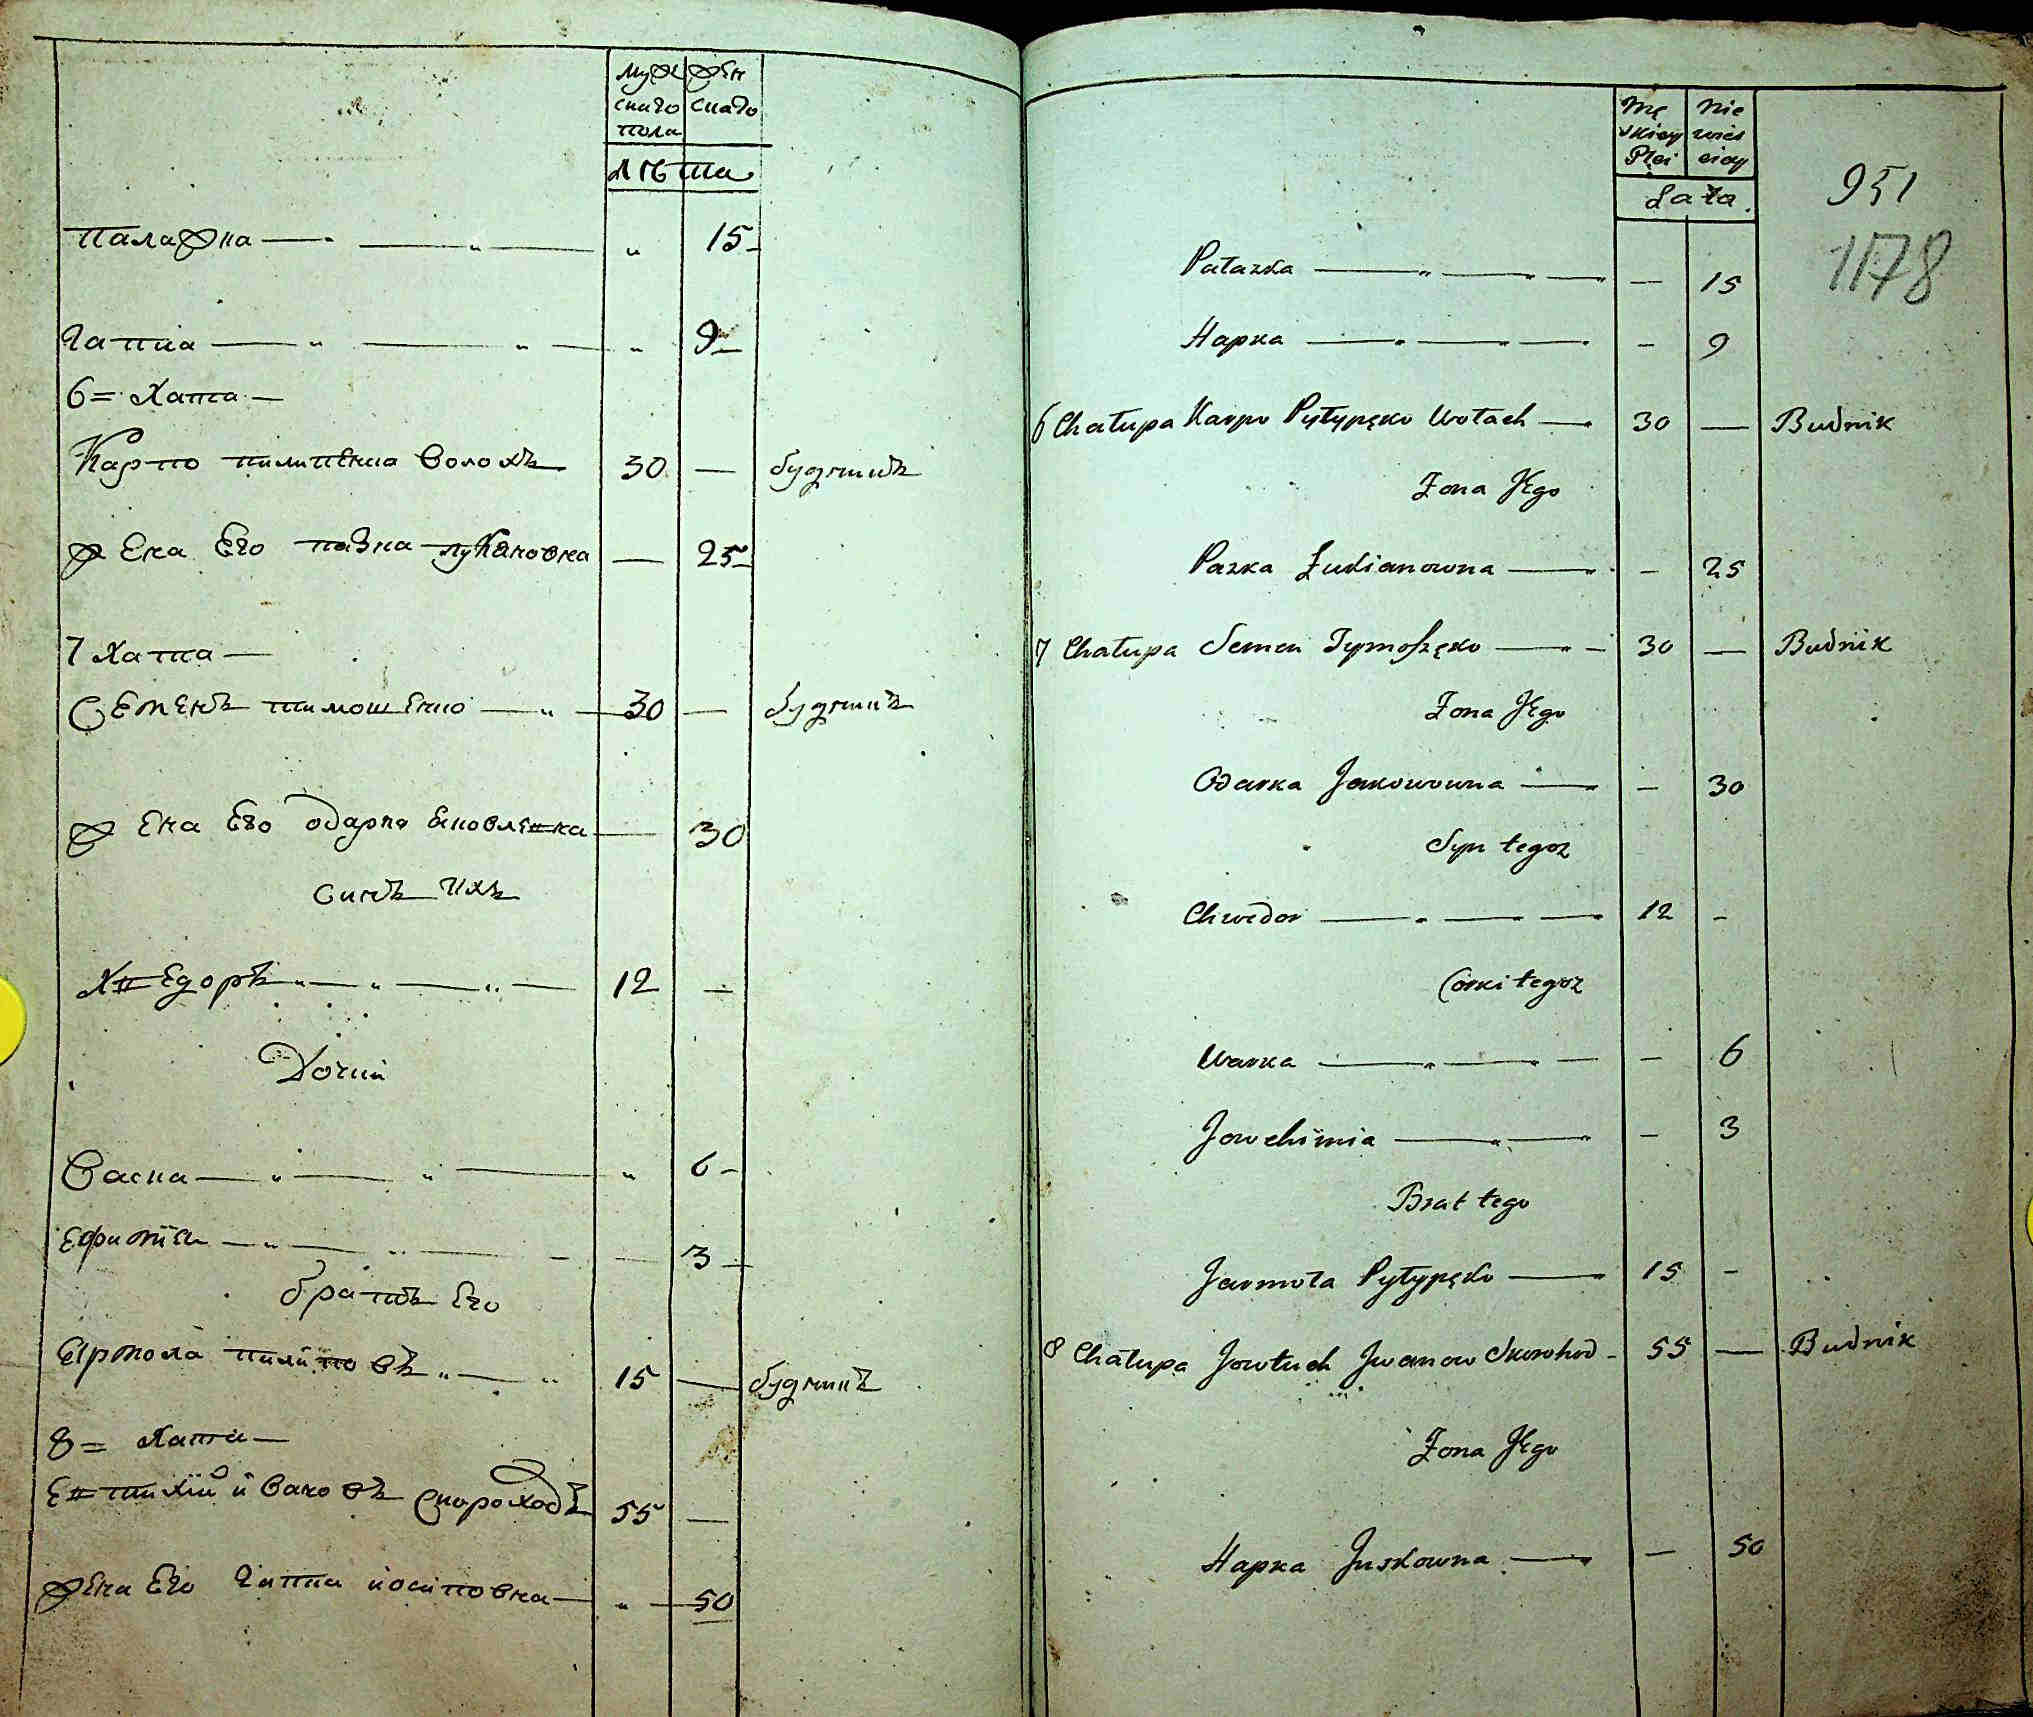 Мужскаго пола женскаго
лѣта
палажка — — 15
гапка — — 9
6 = Хата —
Карпо пилипенко волохъ 30 — будникъ
жена Его пазка лукяновка — 25
7 Хата —
Семенъ тимошенко — 30 — будникъ
жена Его одарка яковлевка — 30
синъ ихъ
Хведоръ — — 12 —
Дочки
Васка — — 6 —
Ефимія — — 3 —
братъ Его
Ярмола пилиповъ — 15 — будникъ
8 = Хата —
Евтихій ивановъ Скороходъ 55 —
жена Его гапка иосиповка — 50
Męskiey Płci Niewiesciey
Lata.
951
1178
Pałazka — — 15
Hapka — — 9
6 Chałupa Karpo Pyłypęko Wołach — 30 — Budnik
Żona Jego
Pazka Łukianowna — — 25
7 Chałupa Semen Tymoszęko — 30 — Budnik
Żona Jego
Odarka Jakowowna — — 30
Syn tegoz
Chwedor — — 12 —
Corki tegoz
Warka — — 6
Jowchimia — — 3
Brat tego
Jarmoła Pyłypęko — 15 —
8 Chałupa Jowtuch Jwanow Skorohod — 55 — Budnik
Żona Jego
Hapka Juskowna — — 50